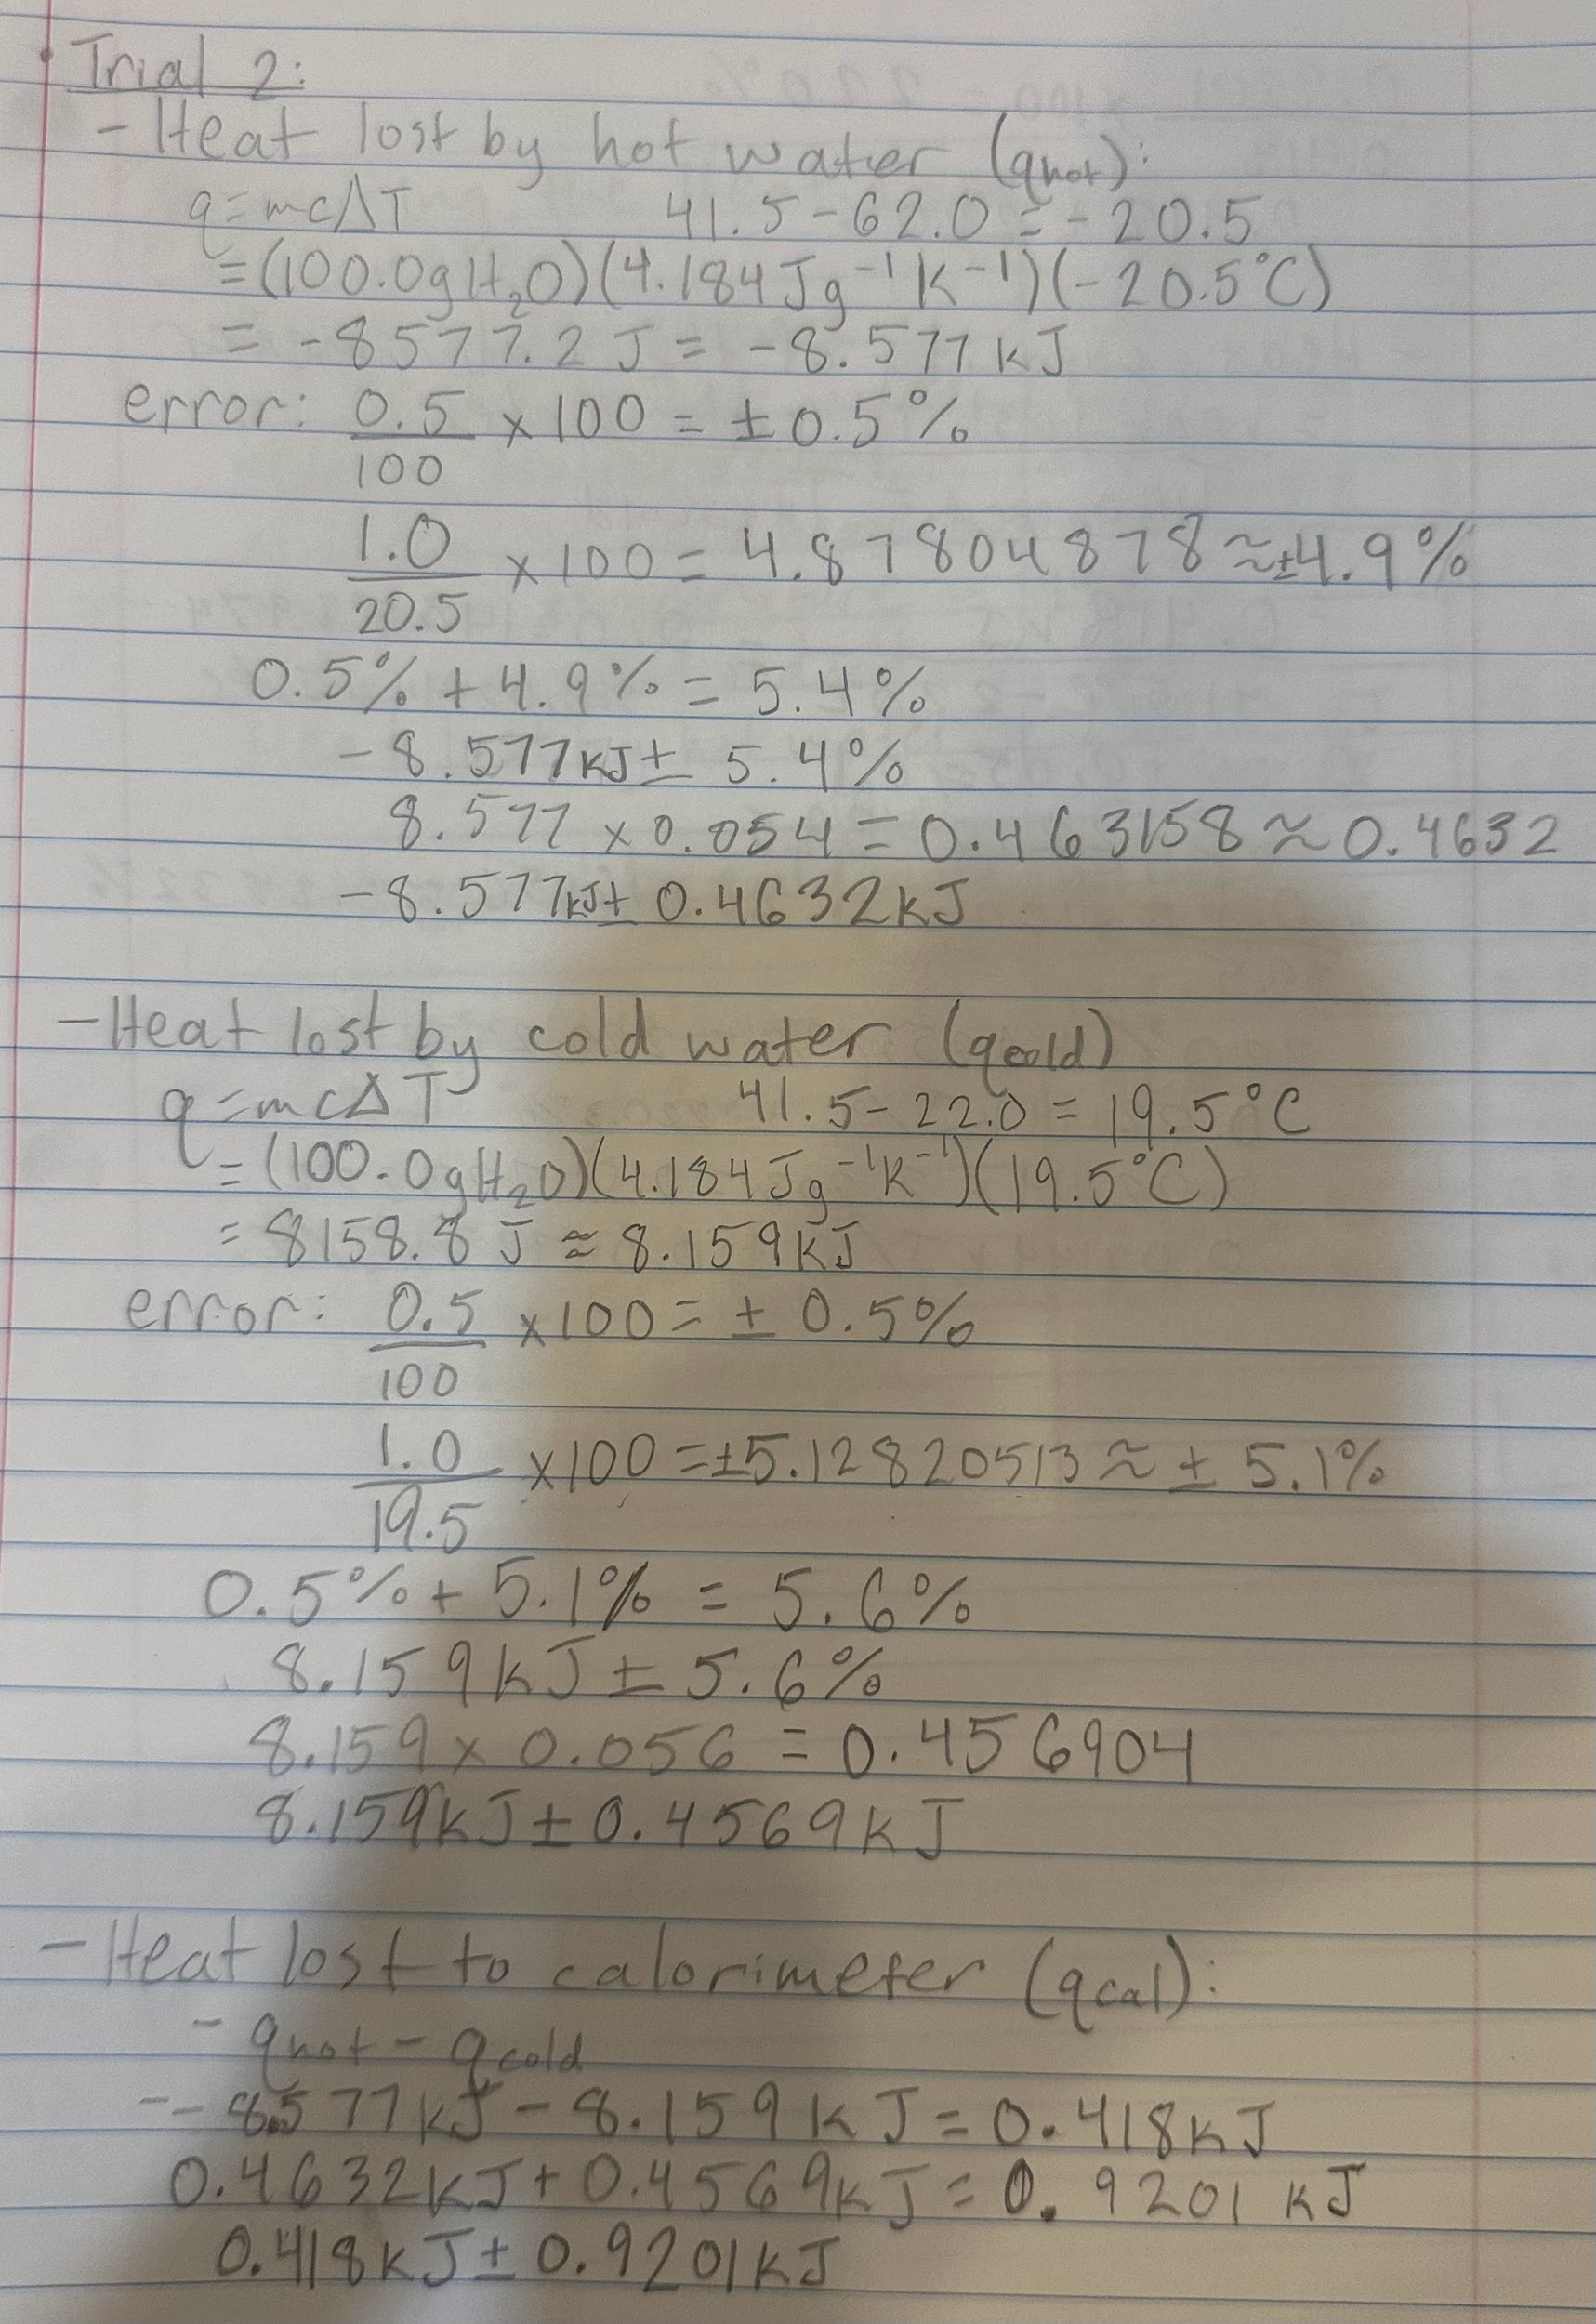 Trial 2:
- Heat lost by hot water (qhot):
q=mcΔT 41.5-62.0 = -20.5
=(100.0gH₂O)(4.184Jg⁻¹K⁻¹)(-20.5°C)
= -8577.2 J = -8.577 kJ
error: 0.5/100 × 100 = ±0.5%
1.0/20.5 ×100 = 4.87804878 ≈ ±4.9%
0.5% + 4.9% = 5.4%
-8.577kJ ± 5.4%
8.577 × 0.054 = 0.463158 ≈ 0.4632
-8.577kJ ± 0.4632kJ
- Heat lost by cold water (qcold)
q=mcΔT 41.5-22.0 = 19.5°C
= (100.0gH₂O)(4.184Jg⁻¹K⁻¹)(19.5°C)
= 8158.8 J ≈ 8.159kJ
error: 0.5/100 ×100 = ± 0.5%
1.0/19.5 ×100 = ±5.12820513 ≈ ± 5.1%
0.5% + 5.1% = 5.6%
8.159kJ ± 5.6%
8.159 × 0.056 = 0.456904
8.159kJ ± 0.4569kJ
- Heat lost to calorimeter (qcal):
- qhot - qcold
--8.577kJ - 8.159kJ = 0.418kJ
0.4632kJ + 0.4569kJ = 0.9201 kJ
0.418kJ ± 0.9201kJ